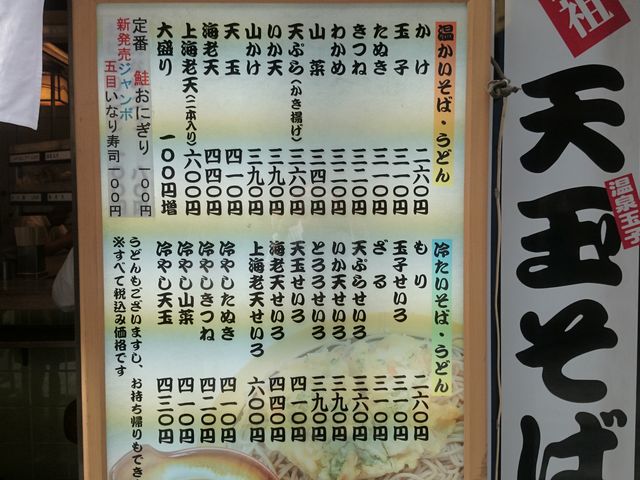 元祖
天玉そば
温泉玉子
温かいそば・うどん
かけ 二六〇円
玉子 三一〇円
たぬき 三一〇円
きつね 三二〇円
わかめ 三二〇円
山菜 三四〇円
天ぷら(かき揚げ) 三六〇円
いか天 三九〇円
山かけ 三九〇円
天玉 四一〇円
海老天 四四〇円
上海老天(二本入り) 六〇〇円
大盛り 一〇〇円増
定番 鮭おにぎり 一〇〇円
新発売ジャンボ
五目いなり寿司 一〇〇円
冷たいそば・うどん
もり 二六〇円
玉子せいろ 三一〇円
ざる 三一〇円
天ぷらせいろ 三六〇円
いか天せいろ 三九〇円
とろろせいろ 三九〇円
天玉せいろ 四一〇円
海老天せいろ 四四〇円
上海老天せいろ 六〇〇円
冷やしたぬき 四一〇円
冷やしきつね 四二〇円
冷やし山菜 四一〇円
冷やし天玉 四三〇円
うどんもございますし、お持ち帰りもでき
※すべて税込み価格です